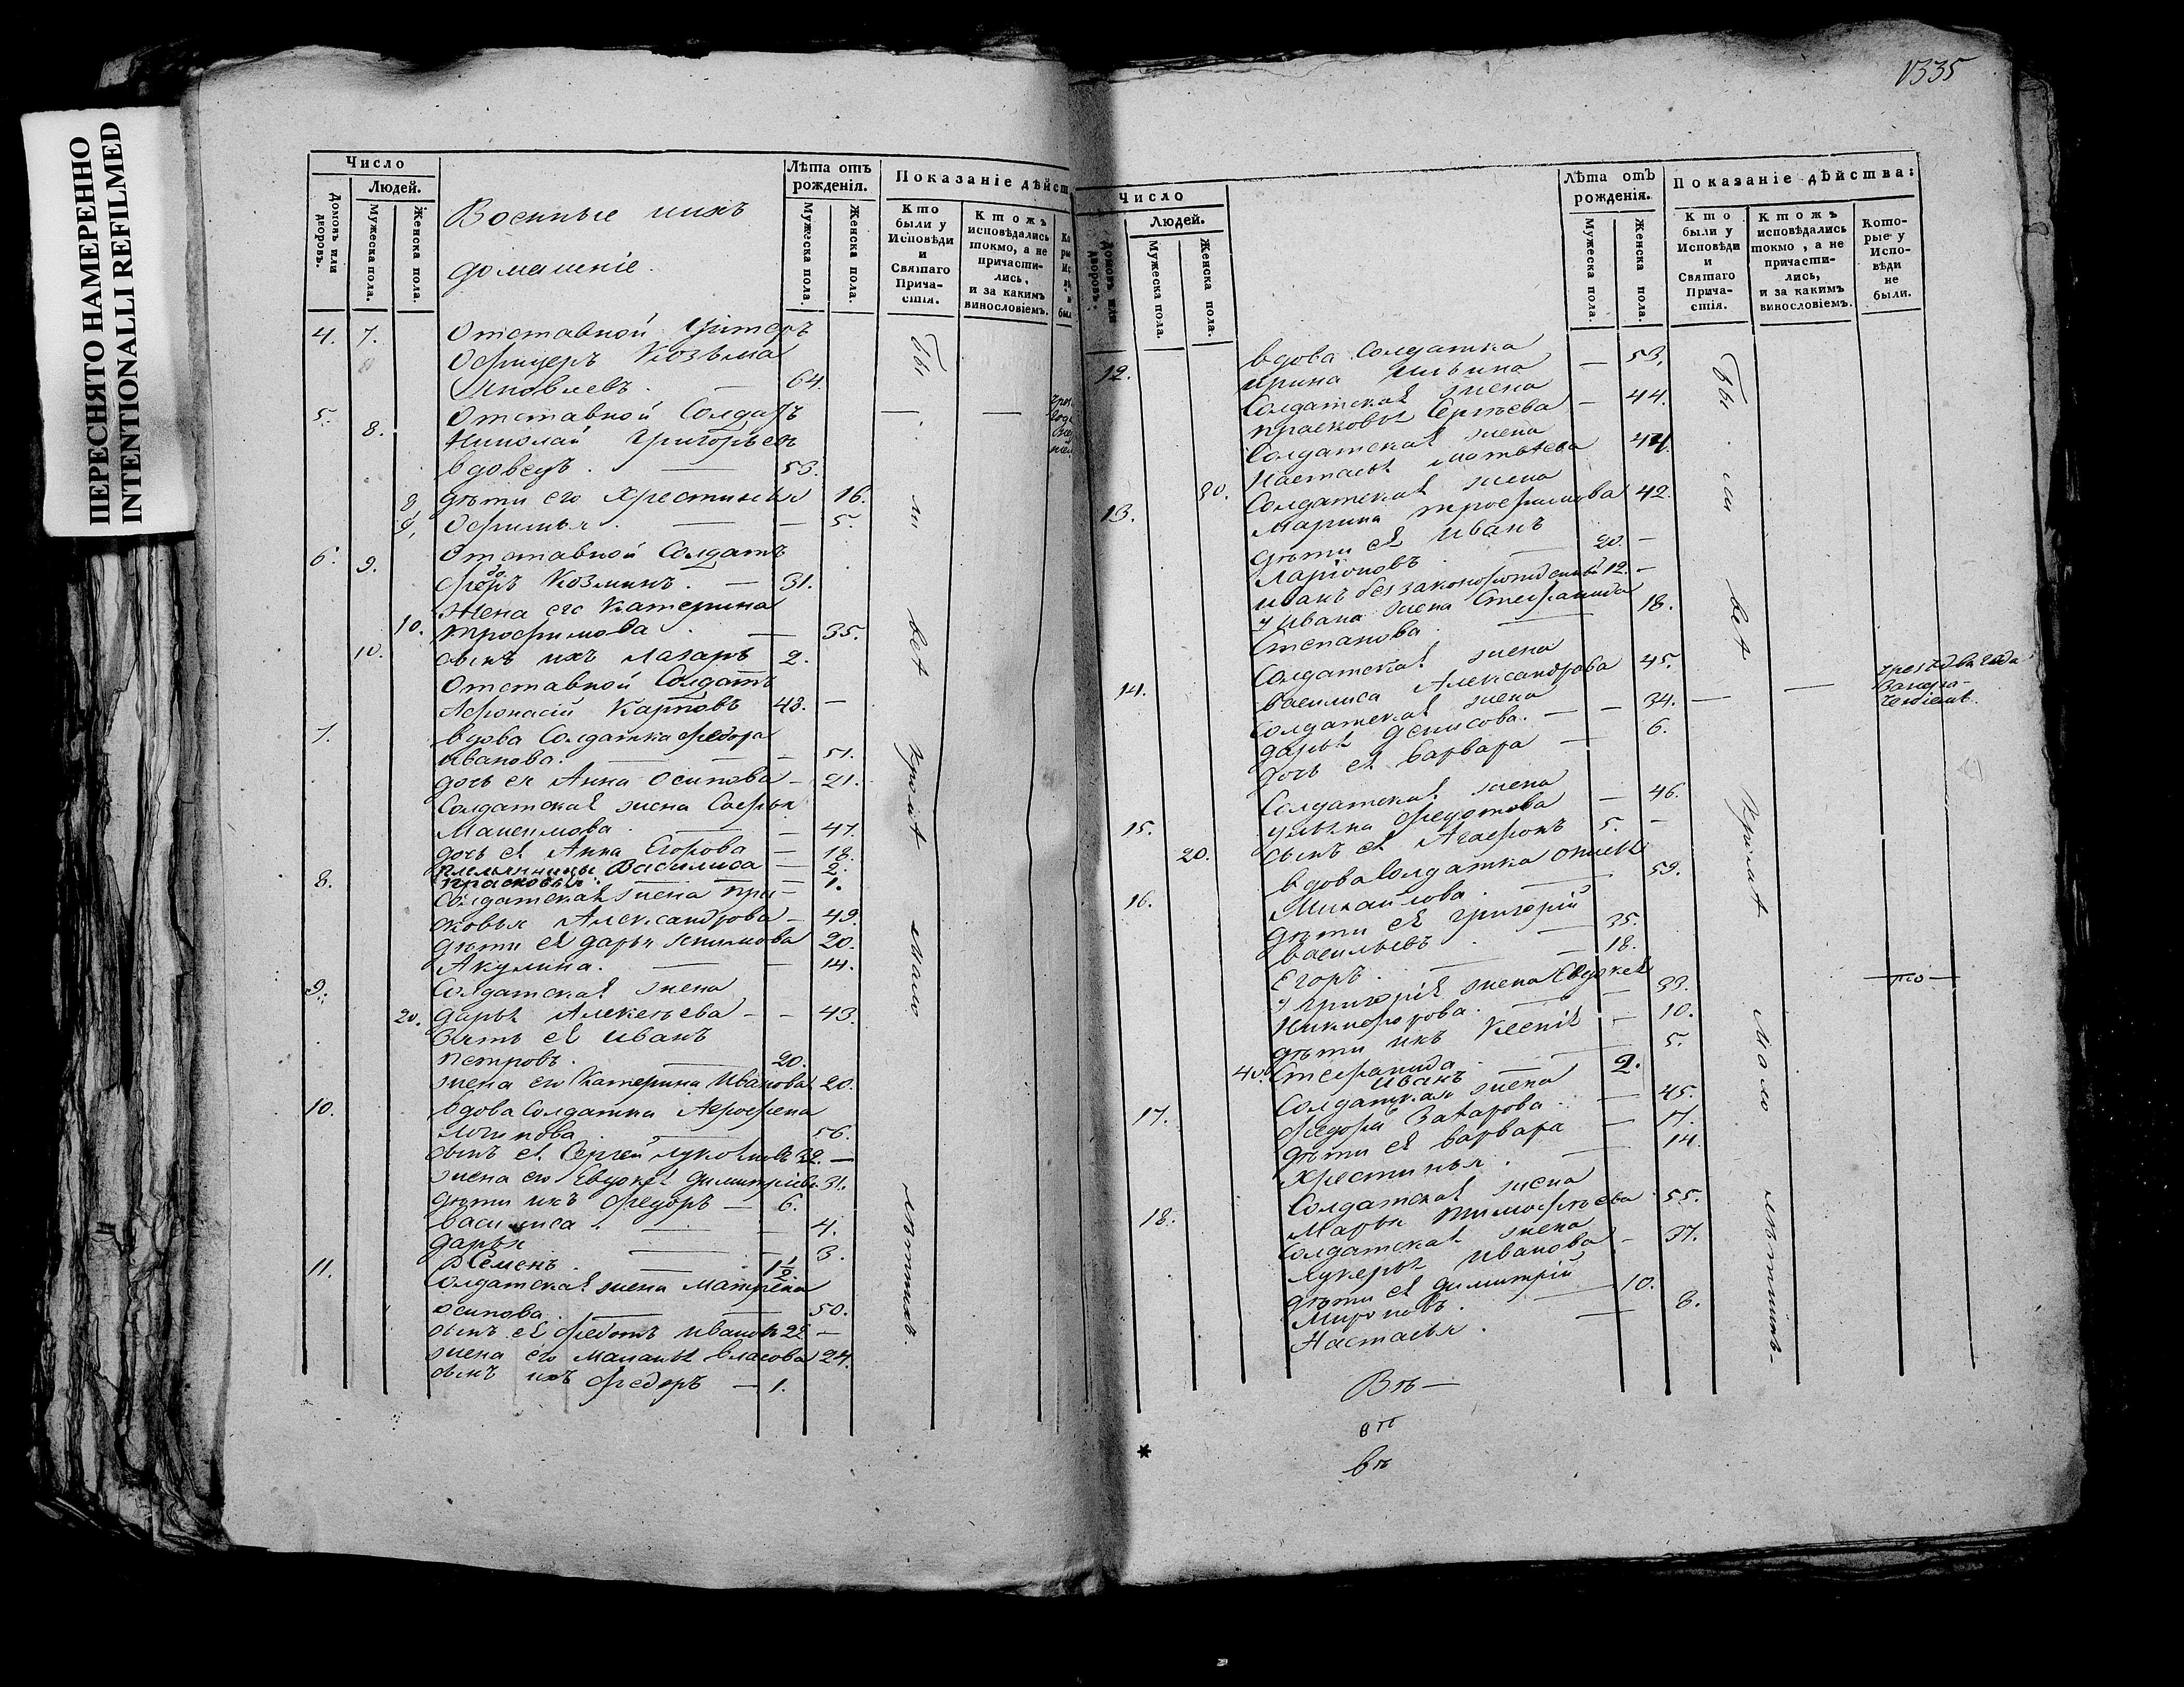 ПЕРЕСНЯТО НАМЕРЕННО
INTENTIONALLI REFILMED
Число
Домовъ или дворовъ.
Людей.
Мужеска пола.
Женска пола.
Военные ихъ
домашніе.
Лѣта отъ рожденія.
Мужеска пола.
Женска пола.
Показаніе дѣйст
Кто были у Исповѣди и Святаго Причастія.
Ктожъ исповѣдались токмо, а не причастились, и за какимъ винословіемъ.
4. 7. Отставной Унтеръ
Офицеръ Козьма
Яковлевъ. — 64.
5. Отставной Солдатъ
8. Николай Григорьевъ
вдовецъ. — 53.
8. дѣти его Хрестинья 16.
9. Офимья. — — 5.
6. 9. Отставной Солдатъ
Федоръ Козминъ. — 31.
Жена его Катерина
10. Трофимова. — 35.
10. сынъ ихъ Лазарь 2.
Отставной Солдатъ
Афонасій Карповъ 43. —
7. вдова Солдатка Федора
Иванова. — — 51.
дочь ея Анна Осипова — 21.
Солдатская жена Софья
Максимова. — — 47.
дочь ея Анна Егорова — 18.
племянницы Василиса — 2.
8. Прасковья. — — 1.
Солдатская жена Пра-
сковья Александрова — 49.
дѣти ея Дарья 20.
Акулина. — — 14.
9. Солдатская жена
20. Дарья Алексѣева — — 43.
Зять ея Иванъ
Петровъ. — 20.
жена его Катерина Иванова 20.
10. вдова Солдатка Афросена
Логинова. — 56.
сынъ ея Сергей
жена его Евдокея Димитріева 31.
дѣти ихъ Федоръ — 6.
Василиса. — — 4.
Дарья — — 3.
Семенъ. — 1½
11. Солдатская жена Матрена
Осипова. — — 50.
сынъ ея Федотъ Ивановъ 22 —
жена его Маланья Власова 24.
сынъ ихъ Федоръ — 1.
Бы ли всѣ кромѣ мало лѣтнихъ
1335
Число
Домовъ или дворовъ.
Людей.
Мужеска пола.
Женска пола.
Лѣта отъ рожденія.
Мужеска пола.
Женска пола.
Показаніе дѣйства:
Кто были у Исповѣди и Святаго Причастія.
Ктожъ исповѣдались токмо, а не причастились, и за какимъ винословіемъ.
Которые у Исповѣди не были.
вдова Солдатка
12. Ирина Ильина — 53.
Солдатская жена
Прасковья Сергѣева — 44.
Солдатская жена
30. Настасья Матвѣева 44.
Солдатская жена
13. Марина Трофимова 42.
дѣти ея Иванъ
Ларіоновъ. — 20. —
Иванъ беззаконорожденный 12. —
у Ивана жена Степанида
Степанова. — 18.
Солдатская жена
14. Василиса Александрова 45.
Солдатская жена
Дарья Денисова. — — 34. — —
дочь ея Варвара — 6.
Солдатская жена
15. Ульяна Федотова — 46.
20. сынъ ея Агафонъ 5. —
вдова Солдатка
16. Михайлова. — 59.
дѣти ея Григорій
Васильевъ. — 35.
Егоръ. — — 18.
у Григорія жена Евдокея
Никифорова. — — 33.
дѣти ихъ Ксенія — 10.
40. Степанида. — 5.
Иванъ 2.
Солдатская жена
17. Федора Захарова. — 45.
дѣти ея Варвара — 17.
Хрестинья. — 14.
Солдатская жена
18. Марья Тимофѣева. 55.
Солдатская жена
Лукерья Иванова — 37.
дѣти ея Димитрій
Мироновъ. — 10.
Настасья. — 8.
Бы ли всѣ кромѣ мало лѣтнихъ
—то—
Въ —
въ
въ
*